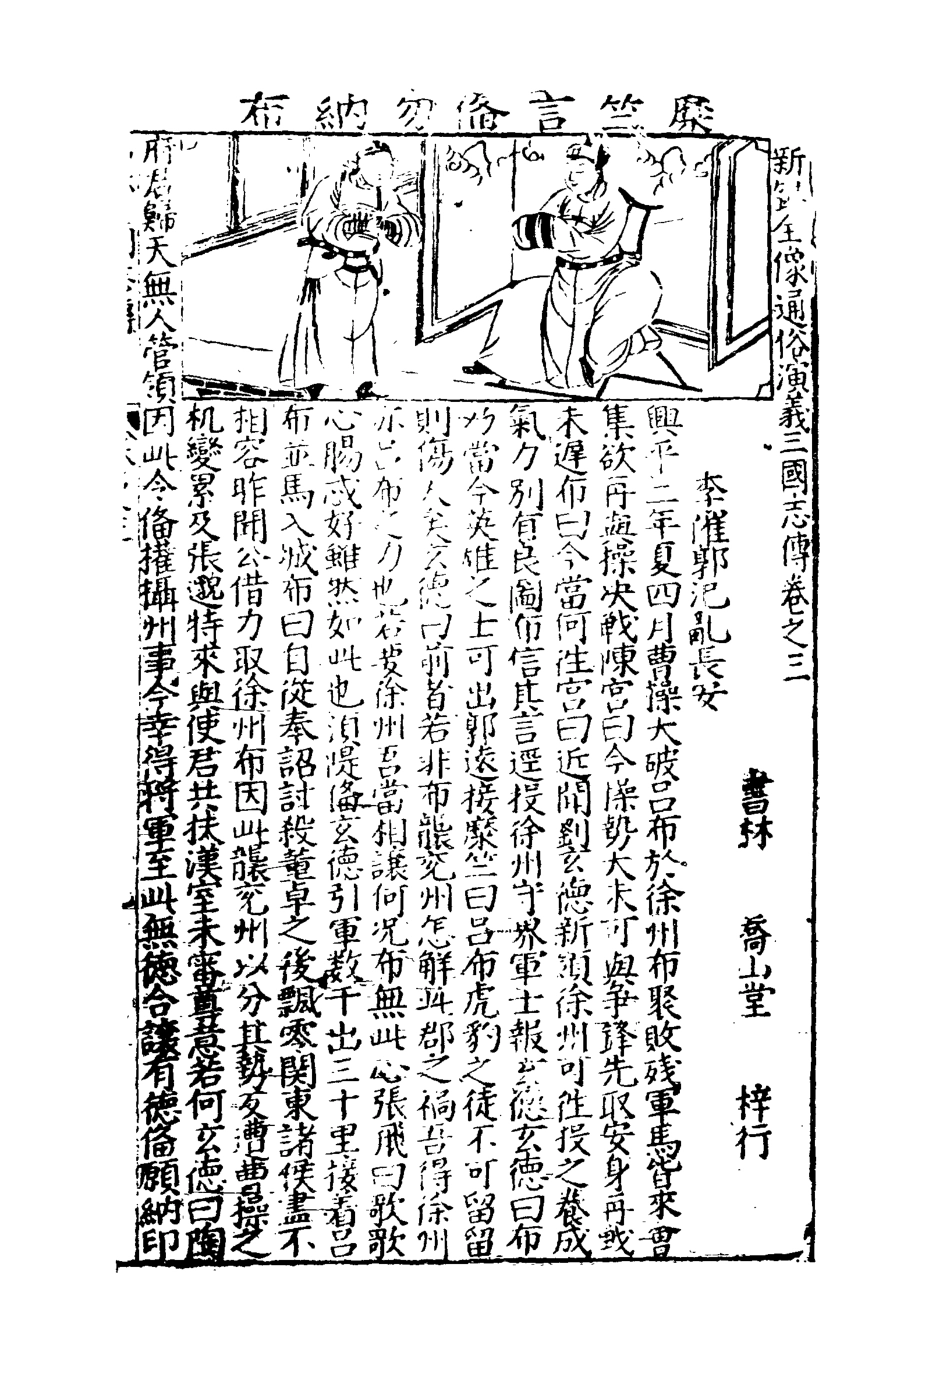 糜竺言俻勿納布
新全像通俗演義三國志傳卷之三
書林 喬山堂 梓行
李傕郭汜亂長安
興平二年夏四月曹操大破吕布於徐州布聚敗残軍馬皆來會
集欲再與操决戰陳宮曰今操勢大未可與争鋒先取安身再戦
未遲布曰今當何徃宮曰近聞劉玄德新領徐州可徃投之養成
氣力別有良圖布信其言逕投徐州守界軍士報玄德玄德曰布
乃當今英雄之士可出郭遠接糜竺曰吕布虎豹之徒不可留留
則傷人矣玄德曰前者若非布襲兖州怎解此郡之禍吾得徐州
亦吕布之力也若要徐州吾當相讓何况布無此心張飛曰歌歌
心腸忒好雖然如此也湏隄俻玄德引軍数千出三十里接着吕
布並馬入城布曰自從奉詔討殺董卓之後飄零関東諸侯盡不
相容昨聞公借力取徐州布因此襲兖州以分其勢反遭曹操之
机變累及張邈特來與使君共扶漢室未審尊意若何玄德曰陶
府君歸天無人管領因此令俻權攝州事今幸得將軍至此無德合讓有德俻願納印